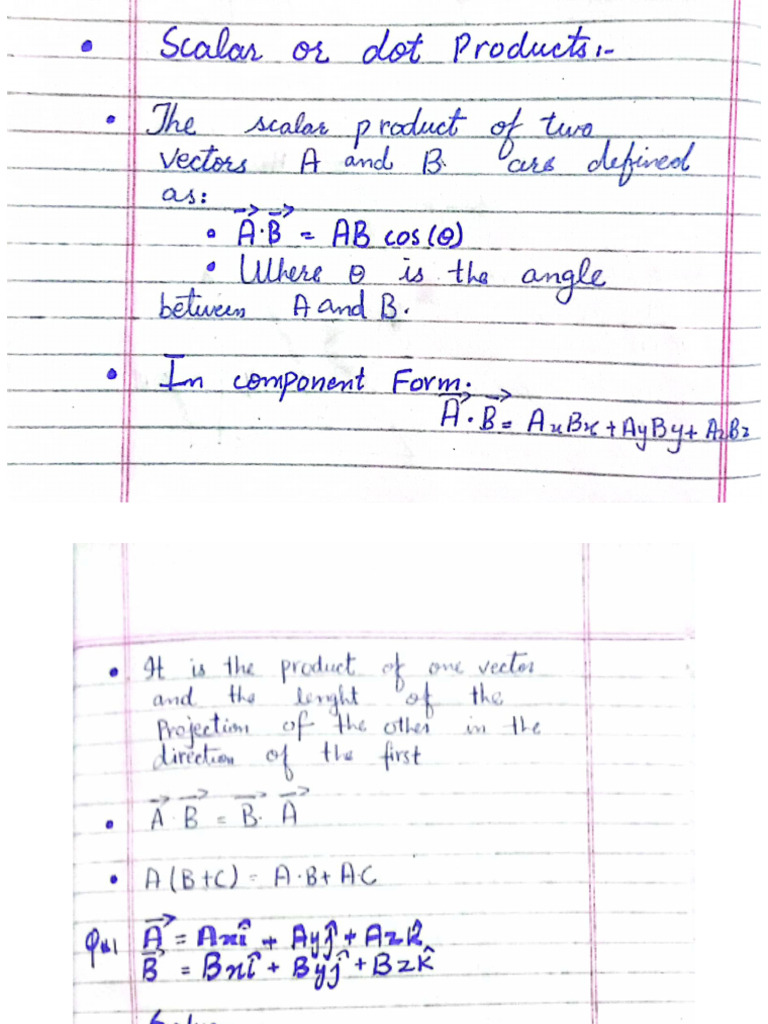 • Scalar or dot Products:-
• The scalar product of two
vectors A and B are defined
as:
• A⃗·B⃗ = AB cos(θ)
• Where θ is the angle
between A and B.
• In component Form.
A⃗·B⃗ = AxBx + AyBy + AzBz
• It is the product of one vector
and the lenght of the
Projection of the other in the
direction of the first
• A⃗·B⃗ = B⃗·A⃗
• A(B+C) = A·B + A·C
A⃗ = Axî + Ayĵ + Azk̂
B⃗ = Bxî + Byĵ + Bzk̂